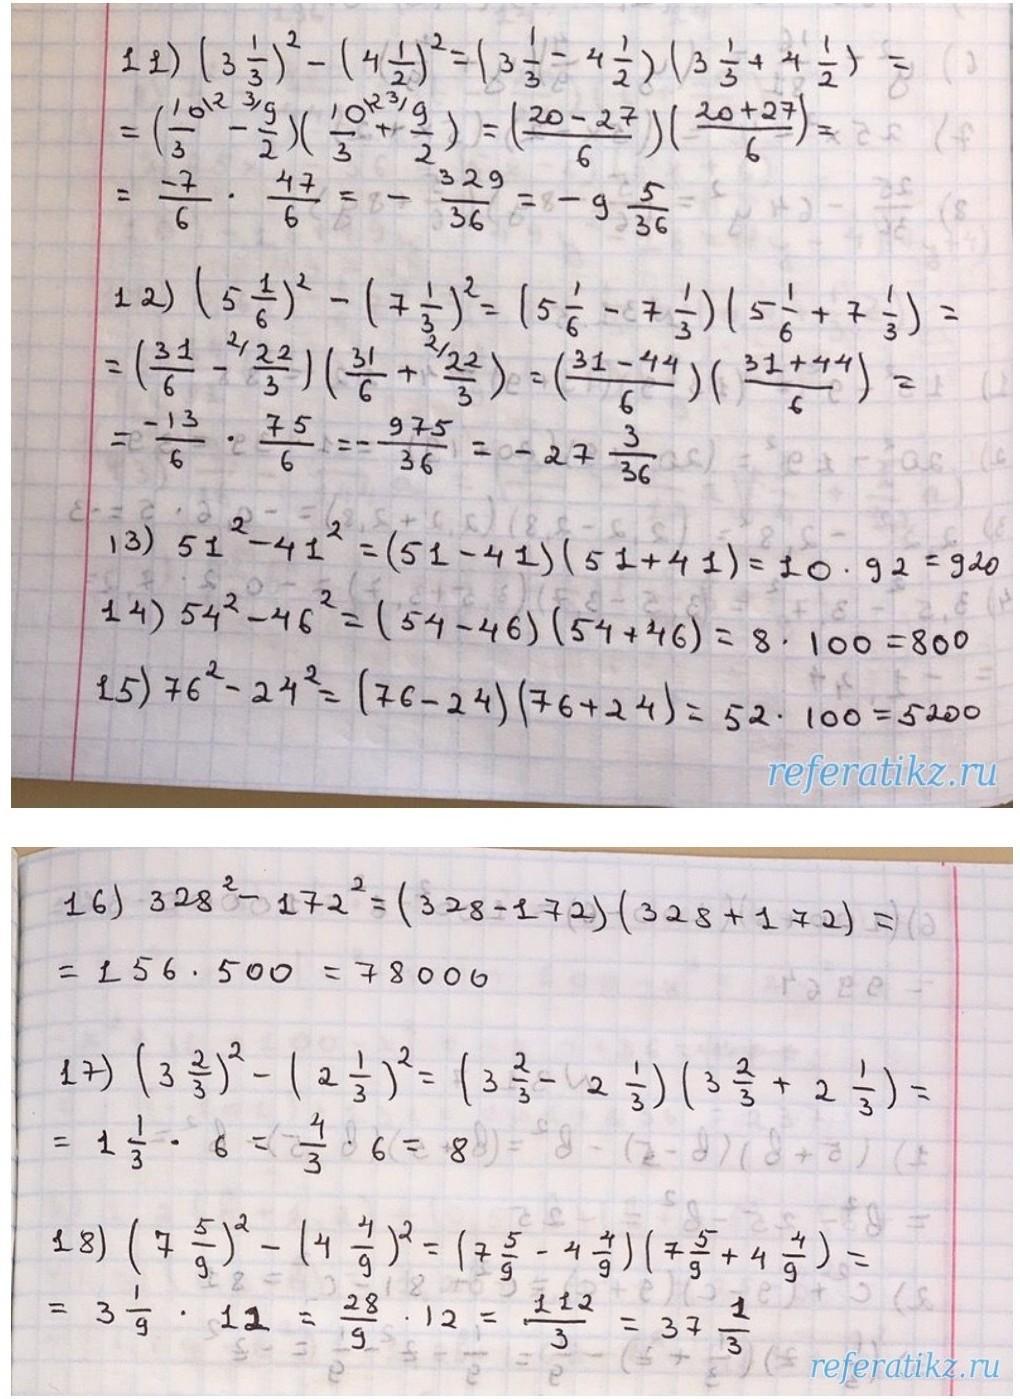 11) (3 1/3)² - (4 1/2)² = (3 1/3 - 4 1/2)(3 1/3 + 4 1/2) =
= (10\2/3 - 3/9/2)(10\2/3 + 3/9/2) = (20-27/6)(20+27/6) =
= -7/6 · 47/6 = - 329/36 = -9 5/36
12) (5 1/6)² - (7 1/3)² = (5 1/6 - 7 1/3)(5 1/6 + 7 1/3) =
= (31/6 - 2/22/3)(31/6 + 2/22/3) = (31-44/6)(31+44/6) =
= -13/6 · 75/6 = - 975/36 = -27 3/36
13) 51² - 41² = (51-41)(51+41) = 10 · 92 = 920
14) 54² - 46² = (54-46)(54+46) = 8 · 100 = 800
15) 76² - 24² = (76-24)(76+24) = 52 · 100 = 5200
referatikz.ru
16) 328² - 172² = (328-172)(328+172) =
= 156 · 500 = 78000
17) (3 2/3)² - (2 1/3)² = (3 2/3 - 2 1/3)(3 2/3 + 2 1/3) =
= 1 1/3 · 6 = 4/3 · 6 = 8
18) (7 5/9)² - (4 4/9)² = (7 5/9 - 4 4/9)(7 5/9 + 4 4/9) =
= 3 1/9 · 12 = 28/9 · 12 = 112/3 = 37 1/3
referatikz.ru